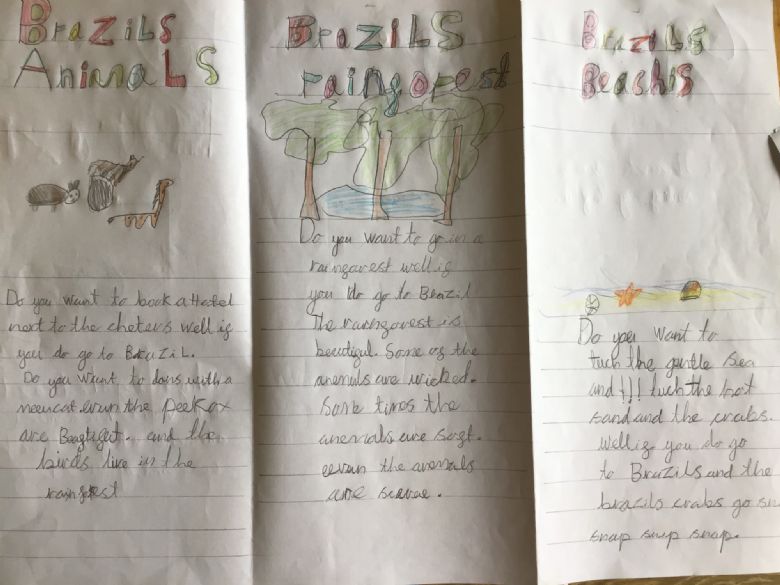 Brazils
Animals
Do you want to book a Hotel
next to the cheters well if
you do go to BraziL.
Do you want to dans with a
meercat. evun the Peekox
are Beagtiget. and the
birds live in the
raingest
BraziLS
raingorest
Do you want to go in a
raingarest well if
you do go to Brazil
The raingorest is
beautiful. Some of the
anemals are wicked.
Some times the
anemals are soft.
eevun the anemals
are scarae.
BraziLs
Beachis
Do you want to
tuch the gentle sea
and!!! tuch the hot
sand and the crabs.
Well if you do go
to Brazils and the
brazils crabs go sn
snap snup snap.